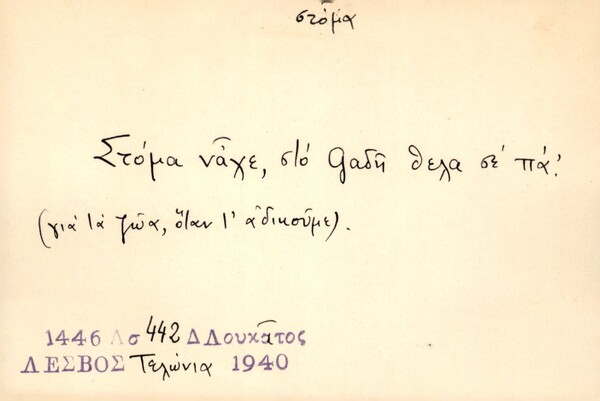 στόμα
Στόμα νἆχε, στὸ ϱαδῆ θελα σὲ πά!
(γιὰ τὰ ζῶα, ὅταν τ' ἀδικοῦμε).
1446 Λσ 442 Δ Λουκᾶτος
ΛΕΣΒΟΣ Τελώνια 1940